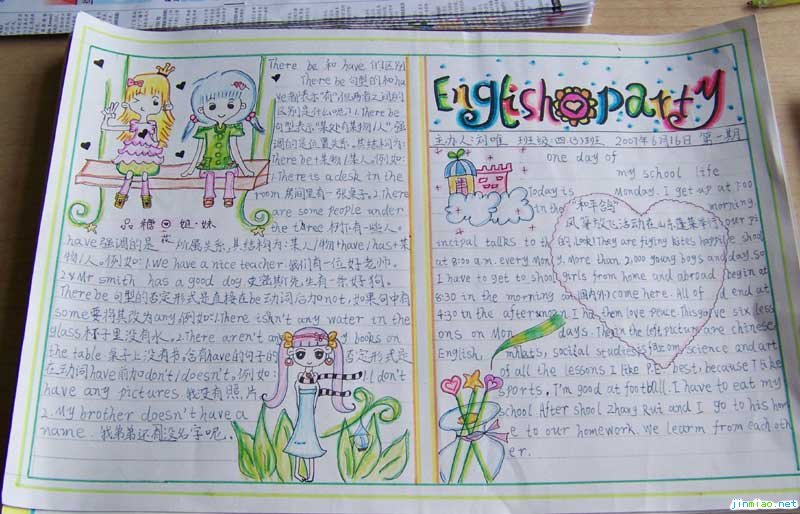 There be 和 have 的区别
There be 句型的和ha
ve者表示"有",但两者之间的
区别是什么呢?1.There b
e 句型表示"某处有某物/人"强
调的是位置关系,其结构为:
There be+某物/某人。例如:
1.There is a desk in the
room 房间里有一张桌子。2.There
are some people under
the tree 树下有一些人。
品糖 姐·妹花
have强调的是所属关系,其结构为:某人/物+have/has+某
物/人。例如:1.We have a nice teacher 我们有一位好老师。
2.Mr smith has a good dog 史密斯先生有一条好狗。
There be 句型的否定形式是直接在be动词后加not,如果句中有
some要将其改为any.例如:1.There isn't any water in the
glass 杯子里没有水。2.There aren't any books on
the table 桌子上没有书,含有have的句子的否定形式是
在动词have前加don't/doesn't。例如:1.I don't
have any pictures 我没有照片
2.My brother doesn't have a
name. 我弟弟还没名字呢。
English party
主办人:刘唯 班级四(3)班 2007年6月16日 第一期
one day of
my school life
Today is Monday. I get up at 7:00
in the morning.
our pr
incipal talks to the
at 8:00 a.m. every Mon day. so
I have to get to shool begin at
8:30 in the morning and end at
4:30 in the afternoon. I have six less
ons on Mon days. They are chinese
English, maths, social studies, science and art
of all the lessons I like P.E best, because I like
sports, I'm good at football. I have to eat my
school. After shool zhang Rui and I go to his hom
e to our homework. We learn from each oth
er.
"和平鸽"
风筝放飞活动在山东蓬莱举行
Look! They are flying kites happily
More than 2,000 young boys and
girls from home and abroad
国内外 come here. All of
them love peace. This
the left picture